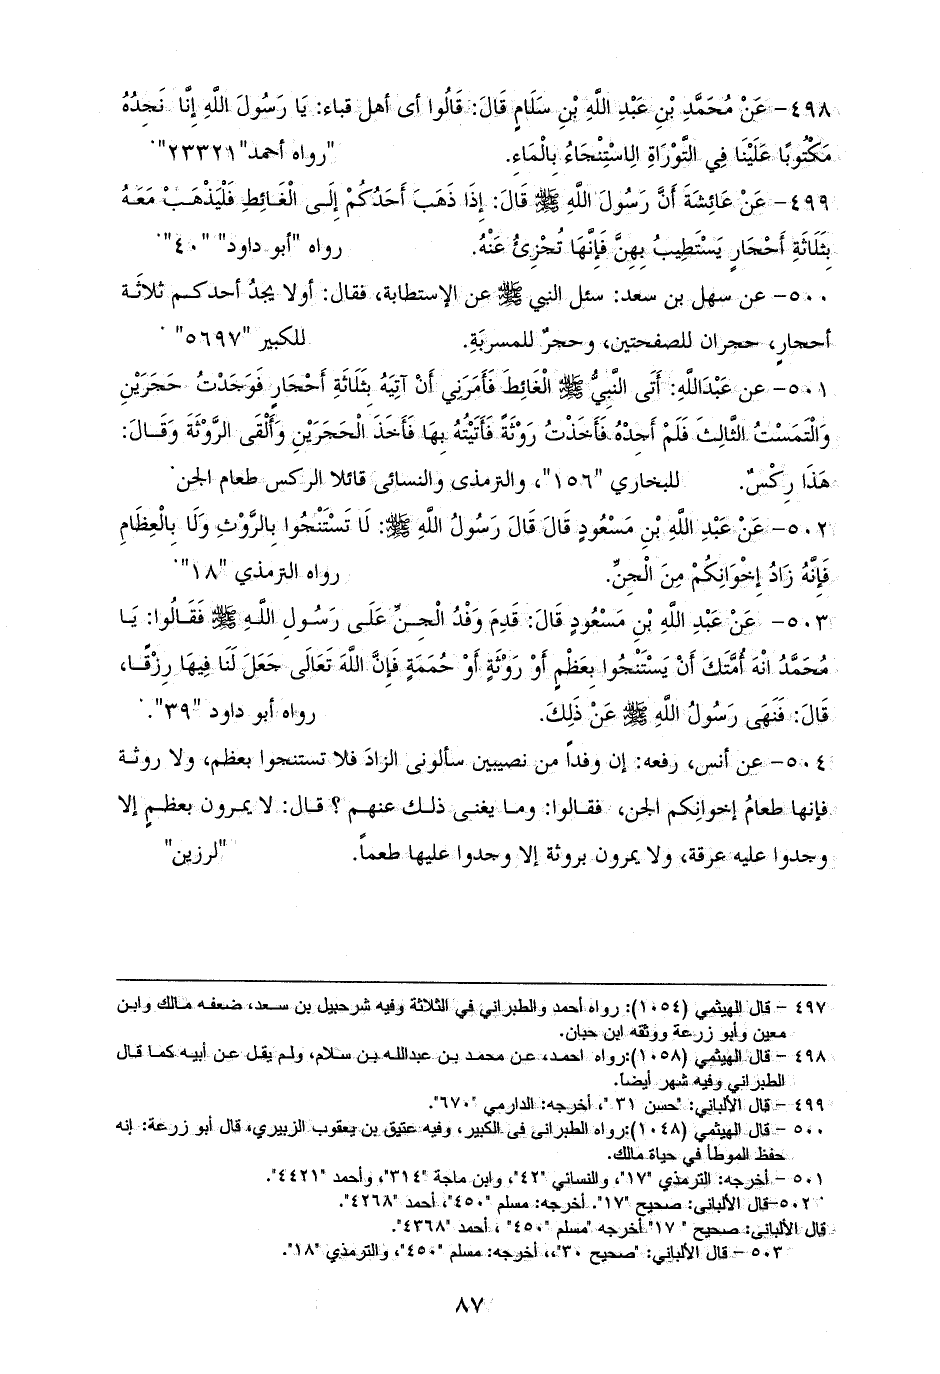 ٤٩٨- عَنْ مُحَمَّدِ بْنِ عَبْدِ اللَّهِ بْنِ سَلَامٍ قَالَ: قَالُوا أى أهل قباء: يَا رَسُولَ اللَّهِ إِنَّا نَجِدُهُ
مَكْتُوبًا عَلَيْنَا فِي التَّوْرَاةِ الِاسْتِنْجَاءُ بِالْمَاءِ. "رواه أحمد"٢٣٣٢١".
٤٩٩- عَنْ عَائِشَةَ أَنَّ رَسُولَ اللَّهِ ﷺ قَالَ: إِذَا ذَهَبَ أَحَدُكُمْ إِلَى الْغَائِطِ فَلْيَذْهَبْ مَعَهُ
بِثَلَاثَةِ أَحْجَارٍ يَسْتَطِيبُ بِهِنَّ فَإِنَّهَا تُجْزِئُ عَنْهُ. رواه "أبو داود" "٤٠".
٥٠٠- عن سهل بن سعد: سئل النبي ﷺ عن الإستطابة، فقال: أولا يجدُ أحدكم ثلاثةَ
أحجارٍ، حجران للصفحتين، وحجرٌ للمسربَةِ. للكبير "٥٦٩٧".
٥٠١- عن عبدَاللَّهِ: أَتَى النَّبِيُّ ﷺ الْغَائِطَ فَأَمَرَنِي أَنْ آتِيَهُ بِثَلَاثَةِ أَحْجَارٍ فَوَجَدْتُ حَجَرَيْنِ
وَالْتَمَسْتُ الثَّالِثَ فَلَمْ أَجِدْهُ فَأَخَذْتُ رَوْثَةً فَأَتَيْتُهُ بِهَا فَأَخَذَ الْحَجَرَيْنِ وَأَلْقَى الرَّوْثَةَ وَقَالَ:
هَذَا رِكْسٌ. للبخاري "١٥٦"، والترمذى والنسائى قائلا الركس طعام الجن.
٥٠٢- عَنْ عَبْدِ اللَّهِ بْنِ مَسْعُودٍ قَالَ قَالَ رَسُولُ اللَّهِ ﷺ: لَا تَسْتَنْجُوا بِالرَّوْثِ وَلَا بِالْعِظَامِ
فَإِنَّهُ زَادُ إِخْوَانِكُمْ مِنَ الْجِنِّ. رواه الترمذي "١٨".
٥٠٣- عَنْ عَبْدِ اللَّهِ بْنِ مَسْعُودٍ قَالَ: قَدِمَ وَفْدُ الْجِنِّ عَلَى رَسُولِ اللَّهِ ﷺ فَقَالُوا: يَا
مُحَمَّدُ انْهَ أُمَّتَكَ أَنْ يَسْتَنْجُوا بِعَظْمٍ أَوْ رَوْثَةٍ أَوْ حُمَمَةٍ فَإِنَّ اللَّهَ تَعَالَى جَعَلَ لَنَا فِيهَا رِزْقًا،
قَالَ: فَنَهَى رَسُولُ اللَّهِ ﷺ عَنْ ذَلِكَ. رواه أبو داود "٣٩".
٥٠٤- عن أنس، رفعه: إن وفداً من نصيبين سألونى الزادَ فلا تستنجوا بعظم، ولا روثة
فإنها طعامُ إخوانِكم الجن، فقالوا: وما يغنى ذلك عنهم؟ قال: لا يمرون بعظمٍ إلا
وجدوا عليه عرقة، ولا يمرون بروثة إلا وجدوا عليها طعماً. "لرزين"
٤٩٧ - قال الهيثمي (١٠٥٤): رواه أحمد والطبراني في الثلاثة وفيه شرحبيل بن سعد، ضعفه مالك وابن
معين وأبو زرعة ووثقه ابن حبان.
٤٩٨ - قال الهيثمي (١٠٥٨):رواه احمد، عن محمد بن عبدالله بن سلام، ولم يقل عن أبيه كما قال
الطبراني وفيه شهر أيضا.
٤٩٩ - قال الألباني: "حسن ٣١ "، أخرجه: الدارمي "٦٧٠".
٥٠٠ - قال الهيثمي (١٠٤٨):رواه الطبرانى فى الكبير، وفيه عتيق بن يعقوب الزبيري، قال أبو زرعة: إنه
حفظ الموطأ في حياة مالك.
٥٠١ - أخرجه: الترمذي "١٧"، والنسائي "٤٢"، وابن ماجة "٣١٤"، وأحمد "٤٤٢١".
٥٠٢-قال الألباني: صحيح "١٧". أخرجه: مسلم "٤٥٠"، أحمد "٤٢٦٨".
قال الألبانى: صحيح " ١٧" أخرجه "مسلم "٤٥٠" ، أحمد "٤٣٦٨".
٥٠٣ - قال الألباني: "صحيح ٣٠"،، أخرجه: مسلم "٤٥٠"، والترمذي "١٨".
٨٧